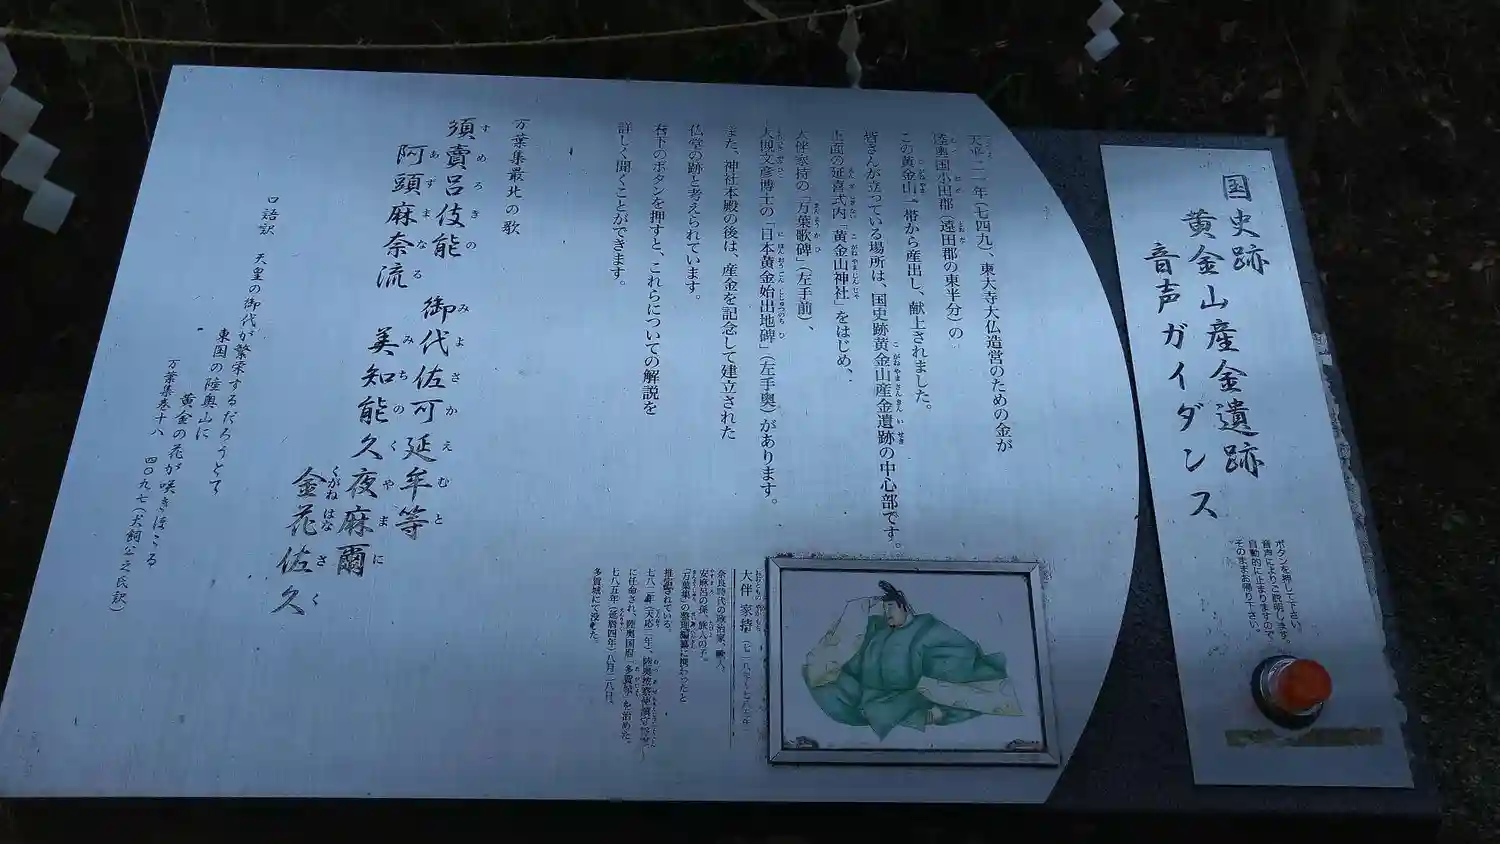 国史跡
黄金山産金遺跡
音声ガイダンス
ボタンを押して下さい。
音声によりご説明します。
自動的に止まりますので、
そのままお帰り下さい。
天平二一年(七四九)、東大寺大仏造営のための金が
陸奥国小田郡(遠田郡の東半分)の
この黄金山一帯から産出し、献上されました。
皆さんが立っている場所は、国史跡黄金山産金遺跡の中心部です。
正面の延喜式内「黄金山神社」をはじめ、
大伴家持の「万葉歌碑」(左手前)、
大槻文彦博士の「日本黄金始出地碑」(左手奥)があります。
また、神社本殿の後は、産金を記念して建立された
仏堂の跡と考えられています。
右下のボタンを押すと、これらについての解説を
詳しく聞くことができます。
大伴 家持(七一八?~七八五年)
奈良時代の政治家、歌人。
安麻呂の孫、旅人の子。
「万葉集」の整理編纂に携わったと
推定されている。
七八二年(天応二年)、陸奥按察使鎮守将軍
に任命され、陸奥国府「多賀城」を治めた。
七八五年(延暦四年)八月二八日、
多賀城にて没した。
万葉集最北の歌
須賣呂伎能 御代佐可延牟等
阿頭麻奈流 美知能久夜麻爾
金花佐久
口語訳 天皇の御代が繁栄するだろうとて
東国の陸奥山に
黄金の花が咲きほこる
万葉集巻十八 四〇九七(犬飼公之氏訳)